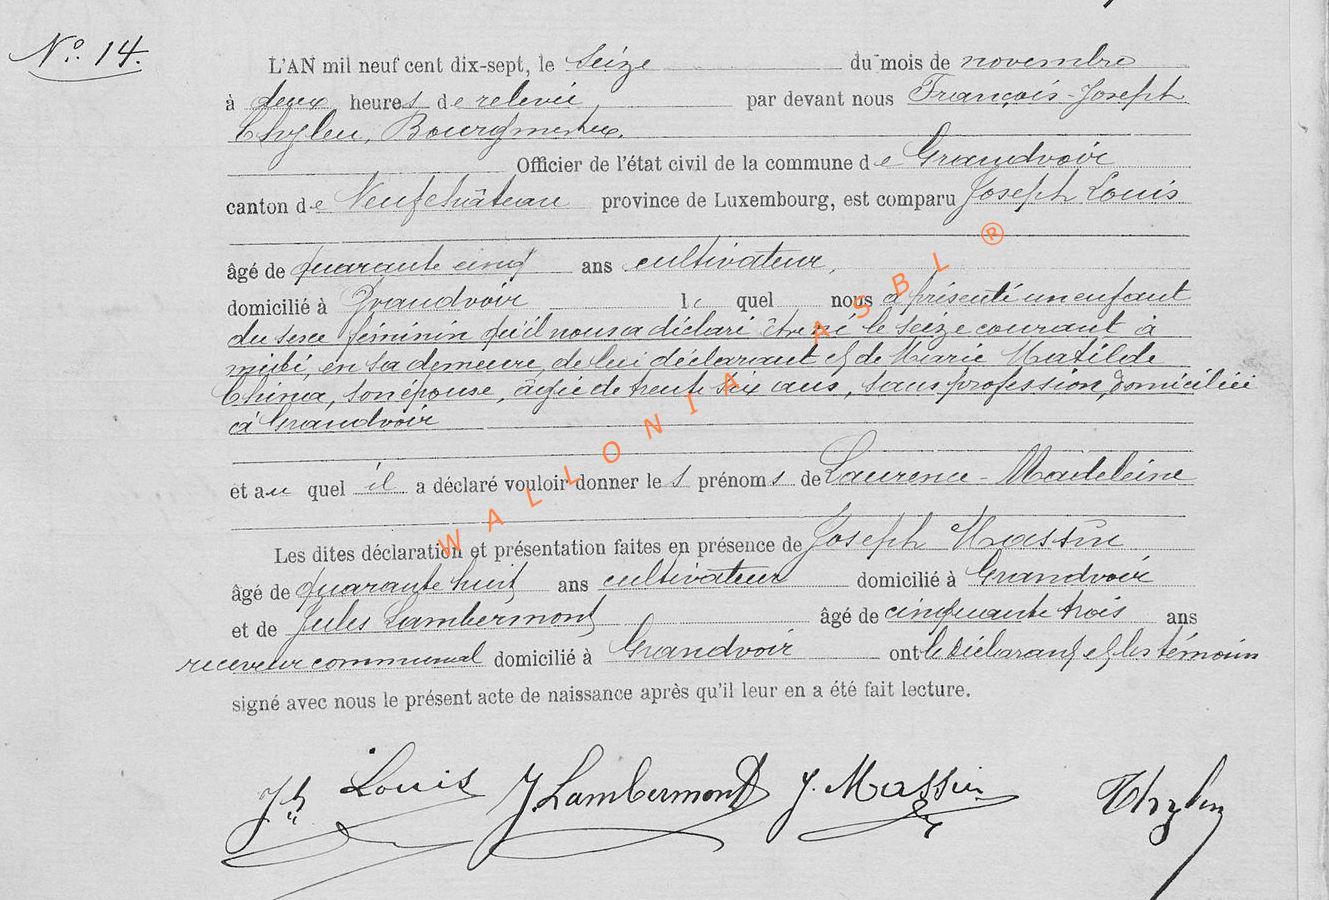 N° 14.
L'AN mil neuf cent dix-sept, le seize du mois de novembre
à deux heures de relevée, par devant nous François-Joseph
Thylen, Bourgmestre,
Officier de l'état civil de la commune de Grandvoir
canton de Neufchâteau province de Luxembourg, est comparu Joseph Louis
âgé de quarante cinq ans cultivateur,
domicilié à Grandvoir lequel nous a présenté un enfant
du sexe féminin qu'il nous a déclaré être né le seize courant à
midi, en sa demeure, de lui déclarant et de Marie Matilde
son épouse, âgée de trente six ans, sans profession, domiciliée
à Grandvoir
et au quel il a déclaré vouloir donner les prénoms de Laurence-Madeleine
Les dites déclaration et présentation faites en présence de Joseph Massin
âgé de quarante huit ans cultivateur domicilié à Grandvoir
et de Jules Lambermont âgé de cinquante trois ans
receveur communal domicilié à Grandvoir ont le déclarant et les témoins
signé avec nous le présent acte de naissance après qu'il leur en a été fait lecture.
Jh Louis J. Lambermont J. Massin Thylen
WALLONIA ASBL ®